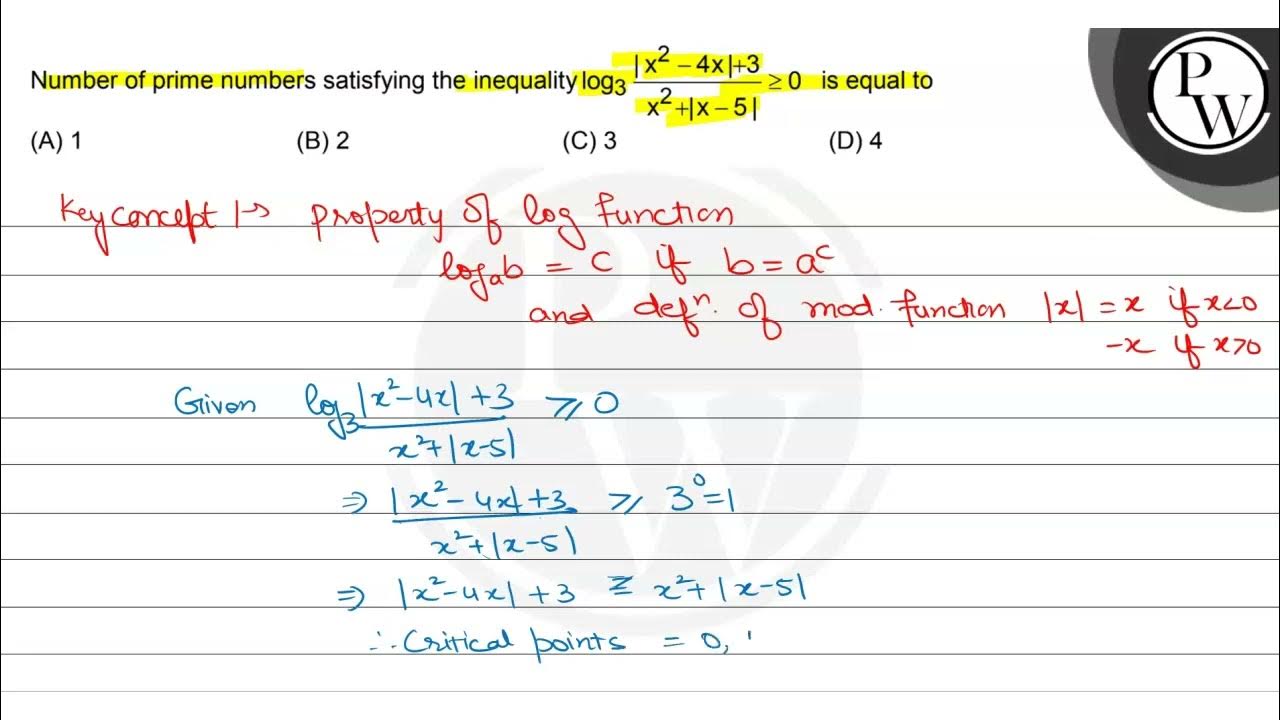 Number of prime numbers satisfying the inequality log₃ |x² – 4x|+3 / x²+|x – 5| ≥ 0 is equal to
(A) 1 (B) 2 (C) 3 (D) 4
P
W
Key concept |→ property of log function
logₐb = c if b = aᶜ
and defⁿ. of mod. function |x| = x if x<0
-x if x>0
Given log₃ |x²-4x|+3 / x²+|x-5| ≥ 0
⇒ |x²-4x|+3 / x²+|x-5| ≥ 3⁰=1
⇒ |x²-4x|+3 ≥ x²+|x-5|
∴ Critical points = 0,